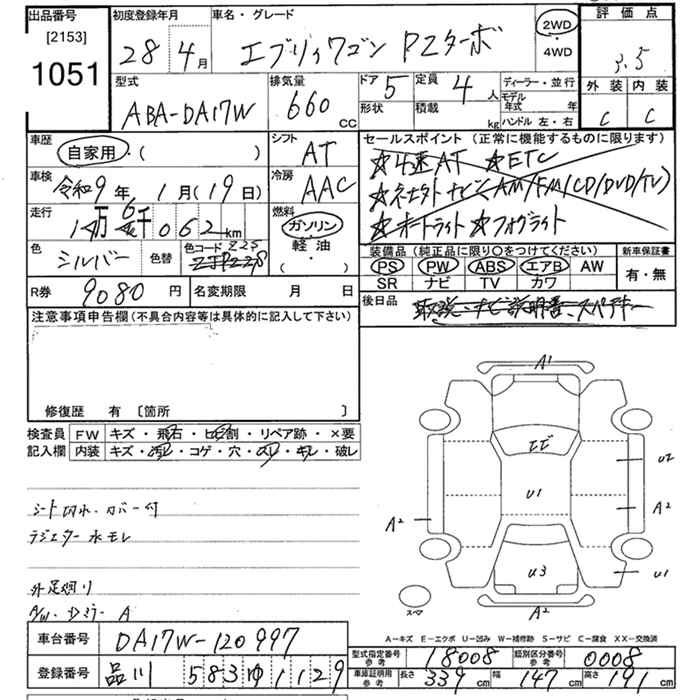 出品番号 初度登録年月 車名・グレード 2WD 評価点
[2153] 28年 4月 エブリィワゴン PZターボ 4WD 3.5
1051 外装 内装
型式 排気量 ドア 5 定員 4人 ディーラー・並行 C C
ABA-DA17W 660cc 形状 積載 kg モデル年式 年 ハンドル 左・右
車歴 自家用・( ) シフト AT セールスポイント (正常に機能するものに限ります)
☆4速AT ☆ETC
車検 令和9年 1月(19日) 冷房 AAC
☆オートライト ☆フォグライト
走行 062km 燃料 ガソリン 軽油 ( ・ )
装備品 (純正品に限り〇をつけてください) 新車保証書
色 シルバー 色替 色コード Z2S
PS PW ABS エアB AW 有・無
SR ナビ TV カワ
R券 9080円 名変期限 月 日 後日品
注意事項申告欄(不具合内容等は具体的に記入して下さい)
修復歴 有 [箇所 ]
検査員 FW キズ・飛石・ヒビ割・リペア跡・×要
記入欄 内装 キズ・汚レ・コゲ・穴・スリ・キレ・破レ
A1
エビ
U2
U1
A2 A2
U3 U1
スペア A2
ラジエター水モレ
A
A-キズ E-エクボ U-凹み W-補修跡 S-サビ C-腐食 XX-交換済
車台番号 DA17W-120997
型式指定番号 参考 18008 類別区分番号 参考 0008
登録番号 品川 583 ゆ 1129
車庫証明用 参考 長さ 339cm 幅 147cm 高さ 191cm